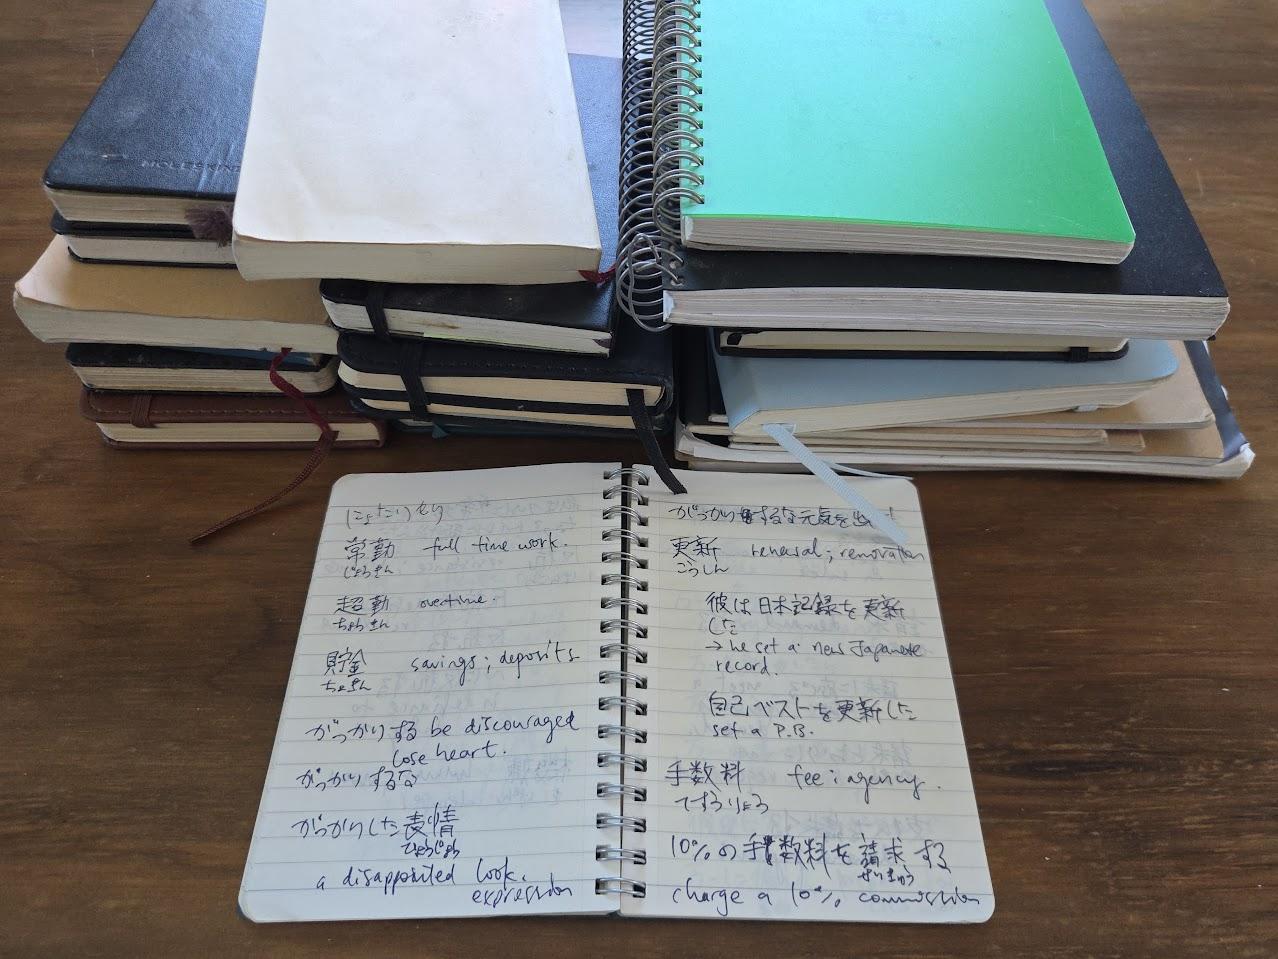 MOLESKINE
常勤 full time work.
じょうきん
超勤 overtime.
ちょうきん
貯金 savings; deposits
ちょきん
がっかりする be discouraged
lose heart.
がっかりするな
がっかりした表情
ひょうじょう
a disappointed look.
expression
がっかりするな元気を出
更新 renewal; renovation
こうしん
彼は日本記録を更新
した
→ he set a new Japanese
record.
自己ベストを更新した
set a P.B.
手数料 fee; agency.
てすうりょう
10%の手数料を請求する
せいきゅう
charge a 10% commission